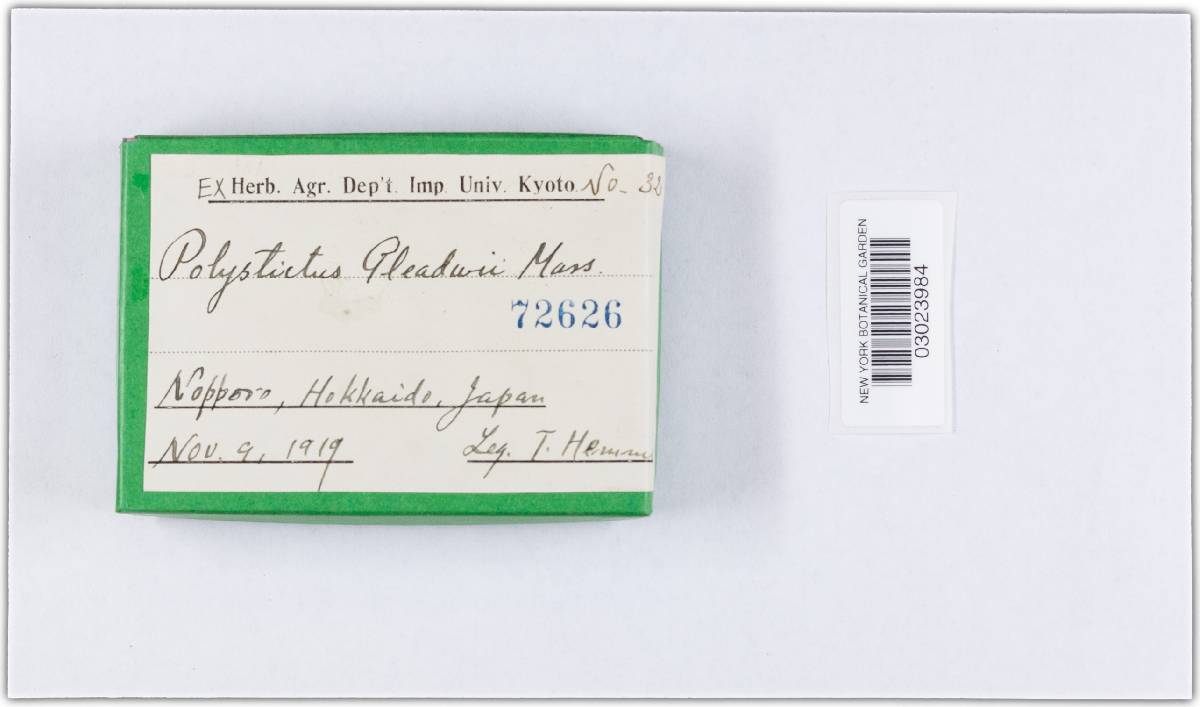 EX Herb. Agr. Dep't. Imp. Univ. Kyoto. No. 32
Polystictus Gleadwii Mass.
72626
Nopporo, Hokkaido, Japan
Nov. 9, 1919 Leg. T. Hemm
NEW YORK BOTANICAL GARDEN
03023984